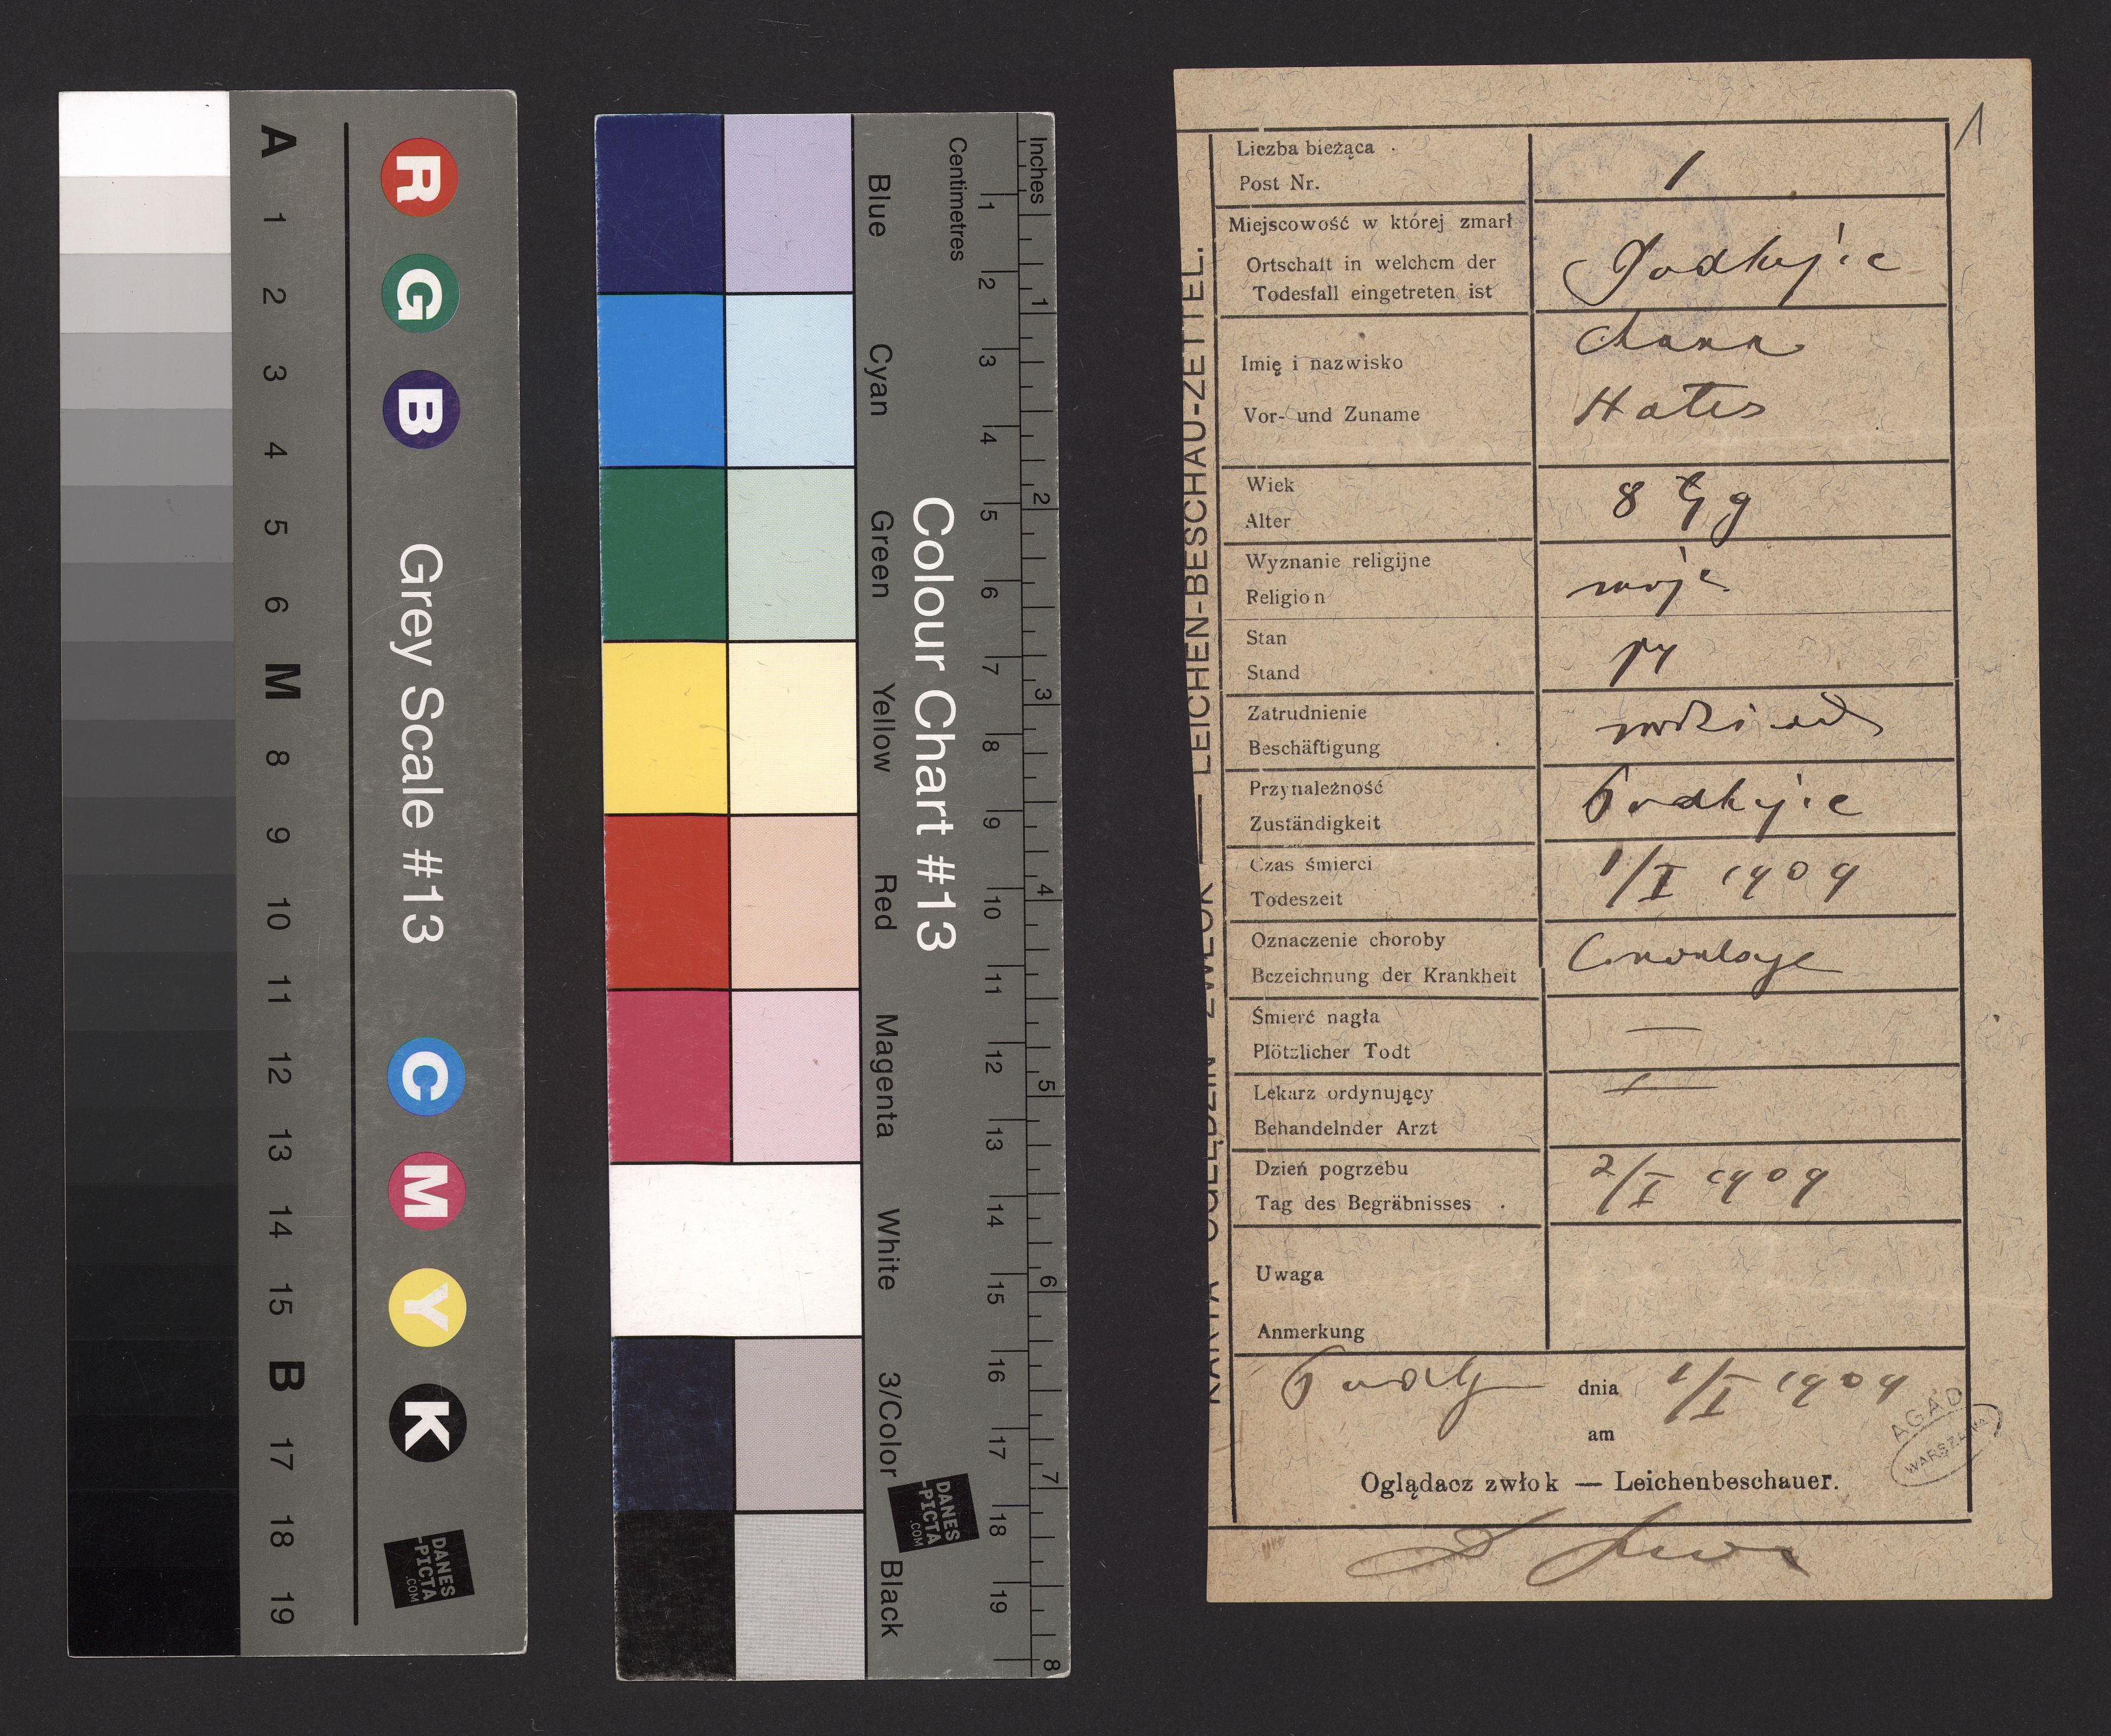 A
1
2
3
4
5
6
M
8
9
10
11
12
13
14
15
B
17
18
19
R
G
B
Grey Scale #13
C
M
Y
K
DANES
-PICTA
.COM
Blue
Cyan
Green
Yellow
Red
Magenta
White
3/Color
Black
Colour Chart #13
DANES
-PICTA
.COM
Centimetres
1
2
3
4
5
6
7
8
9
10
11
12
13
14
15
16
17
18
19
Inches
1
2
3
4
5
6
7
8
1
KARTA OGLĘDZIN ZWŁOK — LEICHEN-BESCHAU-ZETTEL.
Liczba bieżąca
Post Nr.
1
Miejscowość w której zmarł
Ortschaft in welchem der
Todesfall eingetreten ist
Imię i nazwisko
Chana
Vor- und Zuname
Wiek
Alter
8
Wyznanie religijne
Religion
mojż
Stan
Stand
Zatrudnienie
Beschäftigung
Przynależność
Zuständigkeit
Czas śmierci
Todeszeit
1/I 1909
Oznaczenie choroby
Bezeichnung der Krankheit
Śmierć nagła
Plötzlicher Todt
—
Lekarz ordynujący
Behandelnder Arzt
—
Dzień pogrzebu
Tag des Begräbnisses
2/I 1909
Uwaga
Anmerkung
dnia
am
1/I 1909
AGAD
WARSZAWA
Oglądacz zwłok — Leichenbeschauer.